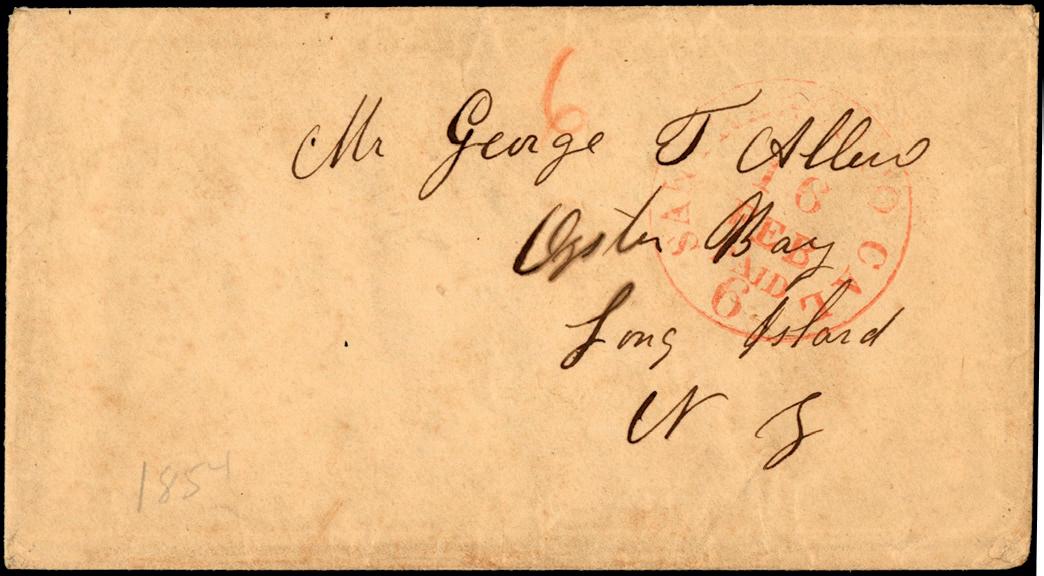 6
Mr George T Allen
Oyster Bay
Long Island
N Y
16
FEB
PAID
6
CAL
1854